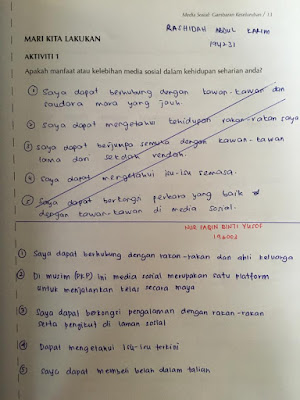 Media Sosial: Gambaran Keseluruhan / 13
RASHIDAH ABDUL KARIM
MARI KITA LAKUKAN
AKTIVITI 1
Apakah manfaat atau kelebihan media sosial dalam kehidupan seharian anda?
① Saya dapat berhubung dengan kawan-kawan dan
saudara mara yang jauh.
② saya dapat mengetahui kehidupan rakan-rakan saya
③ saya dapat berjumpa semula dengan kawan-kawan
lama dari sekolah rendah.
④ saya dapat mengetahui isu-isu semasa.
⑤ Saya dapat berkongsi perkara yang baik
dengan kawan-kawan di media sosial.
NUR IAQIN BINTI YUSOF
① Saya dapat berhubung dengan rakan-rakan dan ahli keluarga
② Di musim (PKP) ini media sosial merupakan satu platform
untuk menjalankan kelas secara maya
③ Saya dapat berkongsi pengalaman dengan rakan-rakan
serta pengikut di laman sosial
④ Dapat mengetahui isu-isu terkini
⑤ Saya dapat membeli belah dalam talian